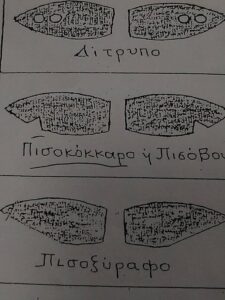 Δίτρυπο
Πισοκόκκαρο ή Πισόβου
Πισοξύραφο